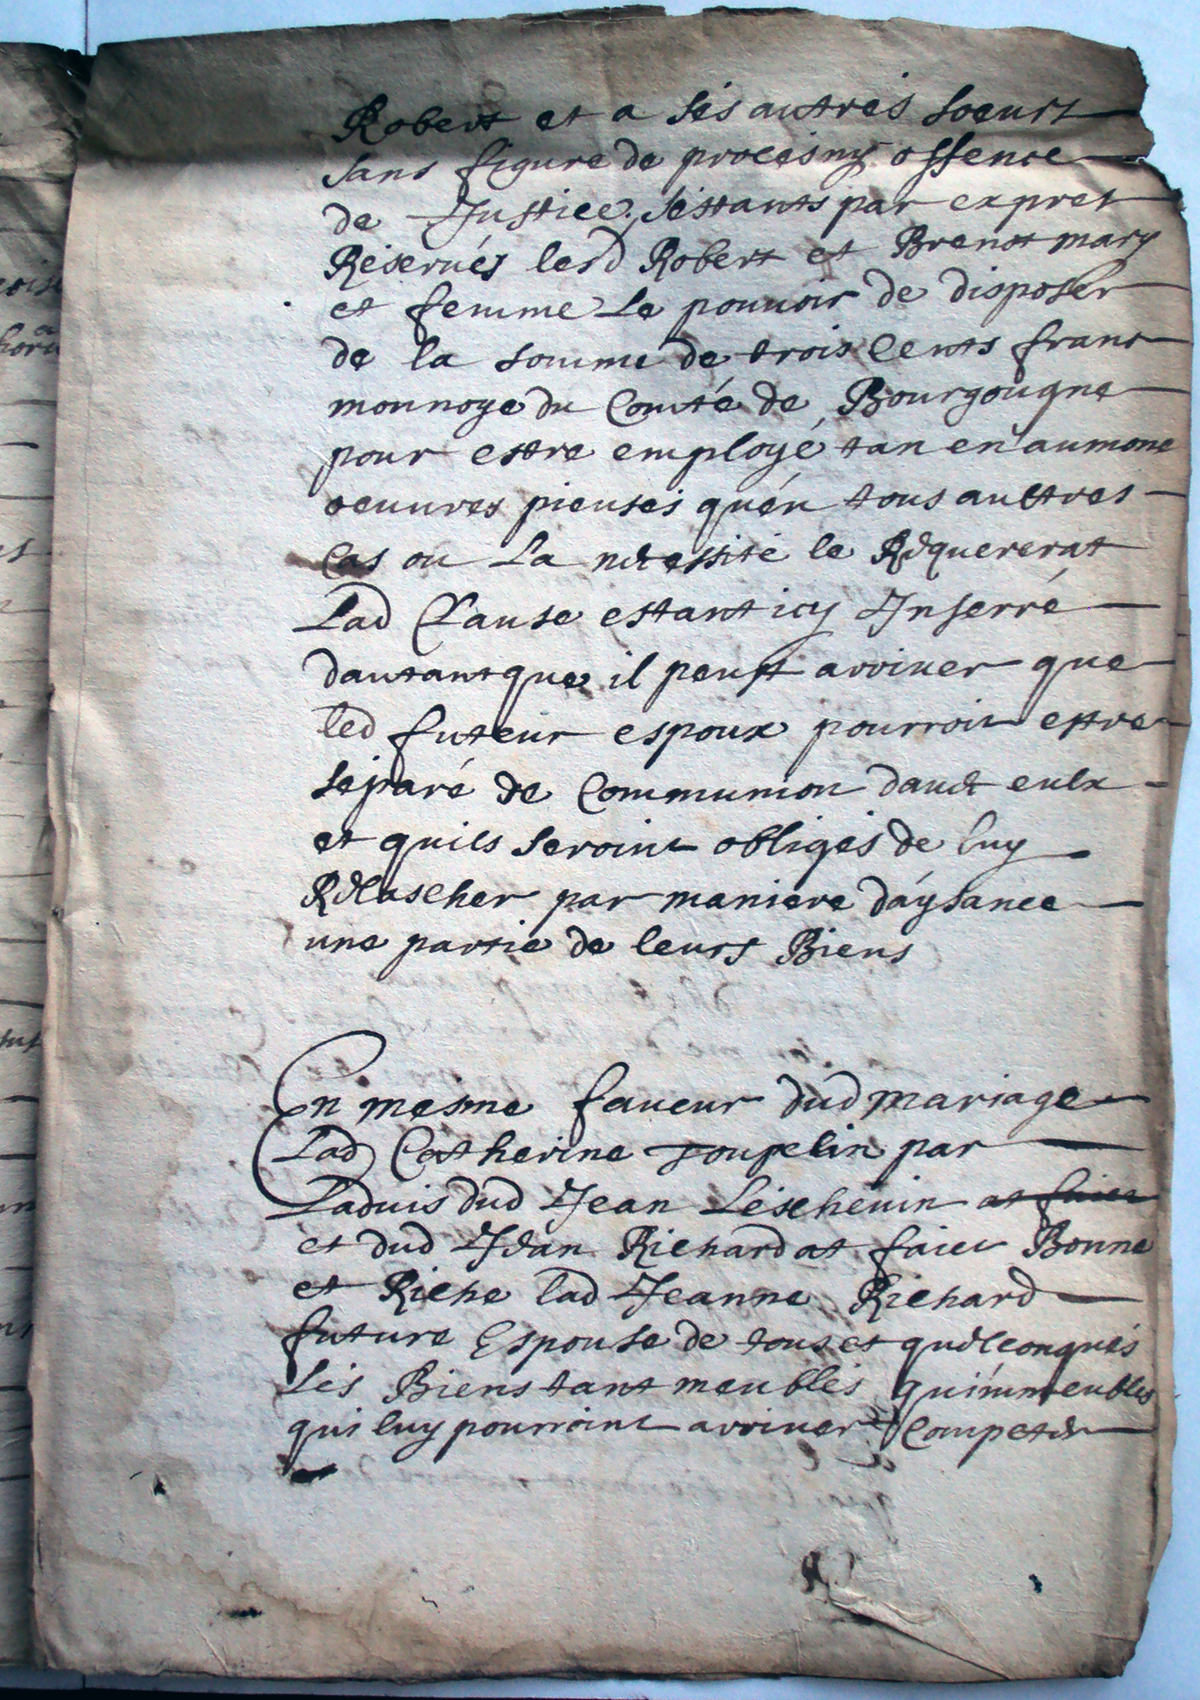 Robert et a ses autres soeurs
sans figure de proces ny offence
de Justice, sestants par expret
Réservés lesd Robert et Brenot mary
et femme Le pouvoir de disposer
de la somme de trois Cents franc
monnoye du Comté de Bourgougne
pour estre employé tan en aumone
oeuvres pieuses quén tous aultres
Cas ou La necessité le Requererat
Lad Clause estant icy Inserré
dautant que il peust arriver que
led futeur espoux pourroit estre
séparé de Communion dauec eulx
et quils seroint obligés de luy
Relascher par maniere daysance
une partie de leurs Biens
En mesme faueur dud mariage
Lad Catherine poupelin par
Laduis dud Jean Leschenin at faict
et dud Jean Richard at faict Bonne
et Riche lad Jeanne Richard
future Espouse de tous et quelconques
Les Biens tant meubles quimmeubles
qui luy pourroint arriver Competer